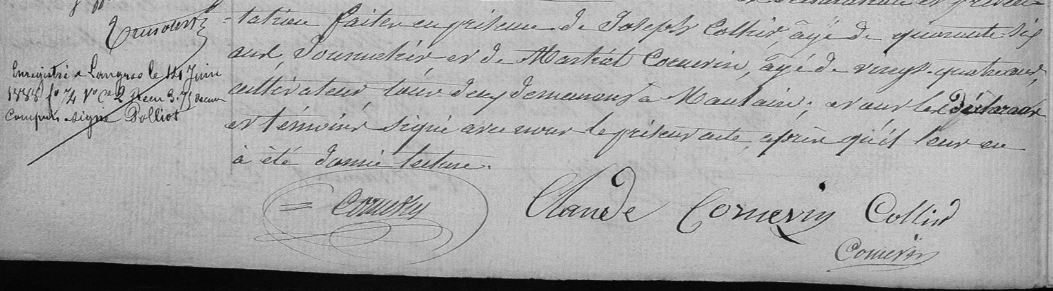 =tation faites en présence de Joseph Collin, âgé de quarante-six
ans, Journalier et de Martial Cornevin, âgé de vingt-quatre ans,
cultivateur tous deux demeurant à Maulain; et ont les déclarants
et témoins signé avec nous le présent acte, après qu'il leur en
a été donné lecture.
Enregistré à Langres le 14 Juin
1888 fo 74 Vo Ce 2 Reçu 3.75 décimes
compris signé Polliot
Cornevin
Claude Cornevin Collin
Cornevin